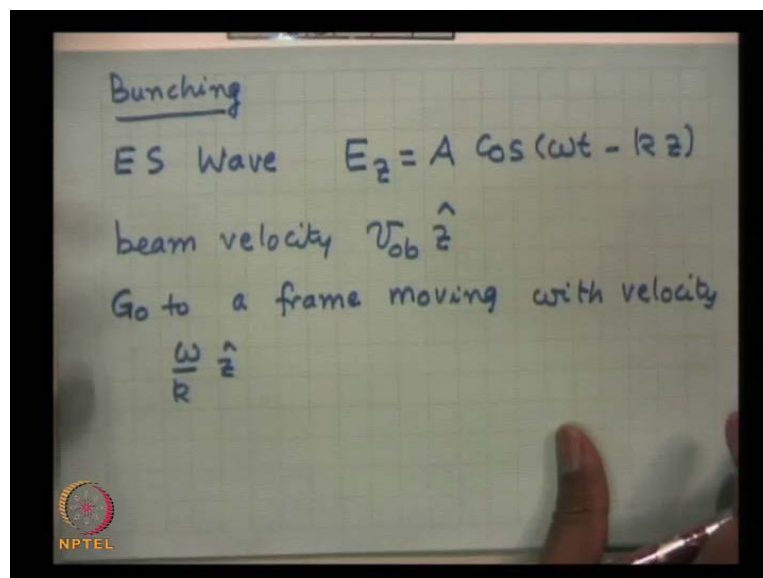 Bunching
ES Wave E_z = A Cos(ωt - kz)
beam velocity v_ob ẑ
Go to a frame moving with velocity
ω/k ẑ
NPTEL